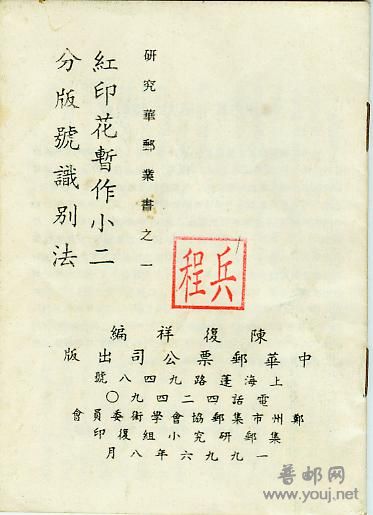 研究華郵業書之一
紅印花暫作小二
分版號識別法
兵程
陳復祥編
中華郵票公司出版
上海蓬路九四八號
電話四二四九〇
鄭州市集郵協會學術委員會
集郵研究小組復印
一九九六年八月
普邮网
www.youj.net